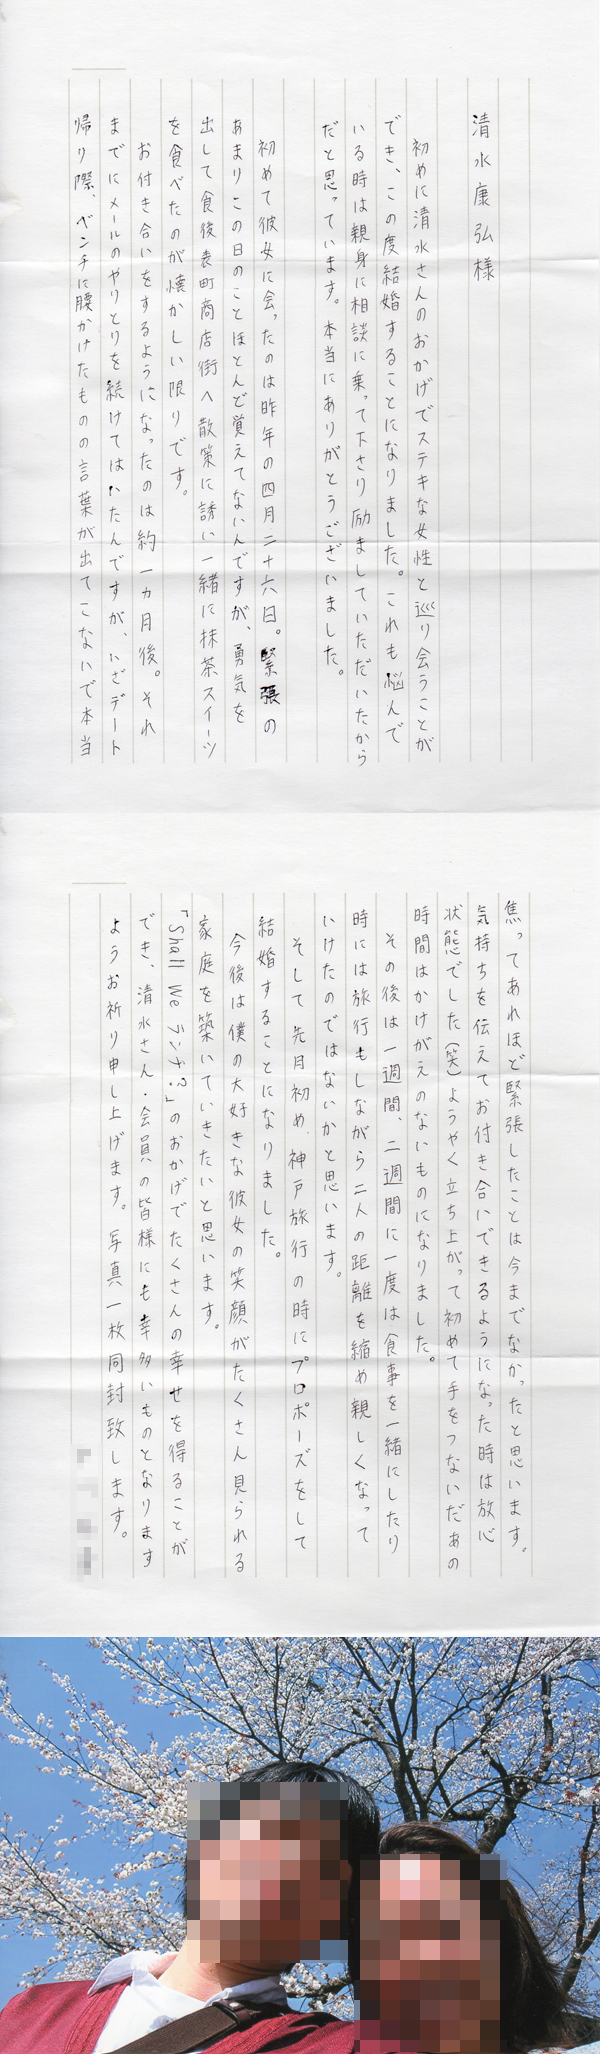 清水康弘様
初めに清水さんのおかげでステキな女性と巡り会うことが
でき、この度結婚することになりました。これも悩んで
いる時は親身に相談に乗って下さり励ましていただいたから
だと思っています。本当にありがとうございました。
初めて彼女に会ったのは昨年の四月二十六日。緊張の
あまりこの日のことほとんど覚えてないんですが、勇気を
出して食後表町商店街へ散策に誘い一緒に抹茶スイーツ
を食べたのが懐かしい限りです。
お付き合いをするようになったのは約一カ月後。それ
までにメールのやりとりを続けてはいたんですが、いざデート
帰り際、ベンチに腰かけたものの言葉が出てこないで本当
焦ってあれほど緊張したことは今までなかったと思います。
気持ちを伝えてお付き合いできるようになった時は放心
状態でした(笑)ようやく立ち上がって初めて手をつないだあの
時間はかけがえのないものになりました。
その後は一週間、二週間に一度は食事を一緒にしたり
時には旅行もしながら二人の距離を縮め親しくなって
いけたのではないかと思います。
そして先月初め、神戸旅行の時にプロポーズをして
結婚することになりました。
今後は僕の大好きな彼女の笑顔がたくさん見られる
家庭を築いていきたいと思います。
「Shall We ランチ?」のおかげでたくさんの幸せを得ることが
でき、清水さん・会員の皆様にも幸多いものとなります
ようお祈り申し上げます。写真一枚同封致します。